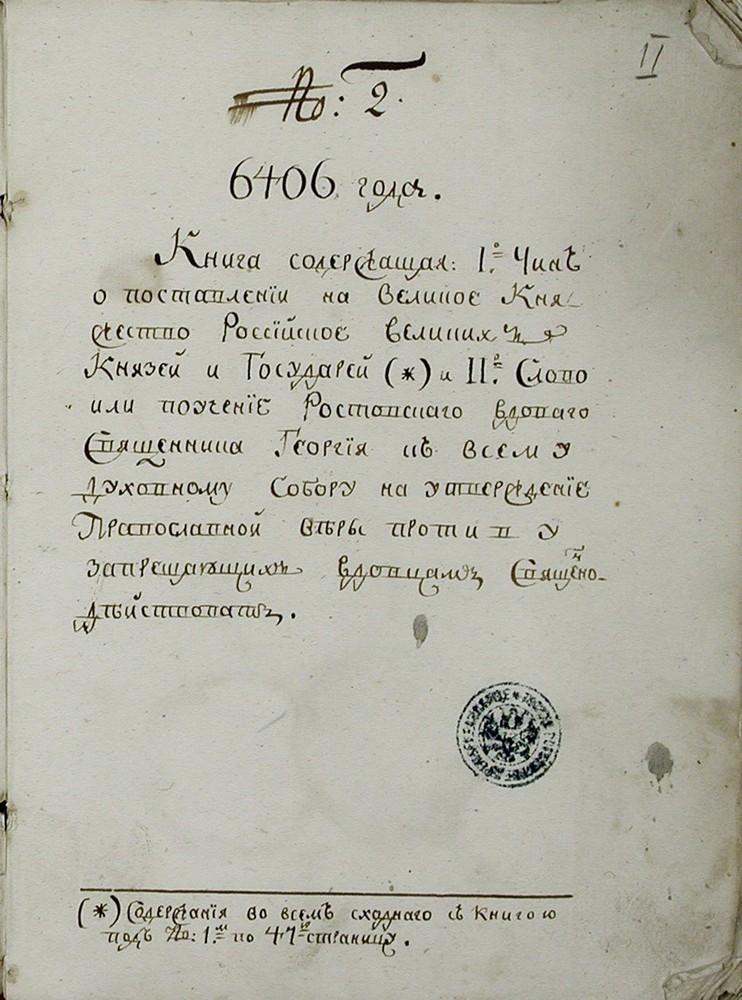 II
No: 2.
6406 года.
Книга содержащая: I.е Чинъ
о поставленіи на Великое Кня-
жество Россійское великихъ
Князей и Государей (*) и II.е Слово
или поученіе Ростовскаго вдоваго
Священника Георгія къ всему
духовному Собору на утвержденіе
Православной Вѣры противу
запрещающихъ вдовцамъ Священно-
дѣйствовать.
(*) Содержанія во всемъ сходнаго съ Книгою
подъ No: 1.м по 47ю страницу.